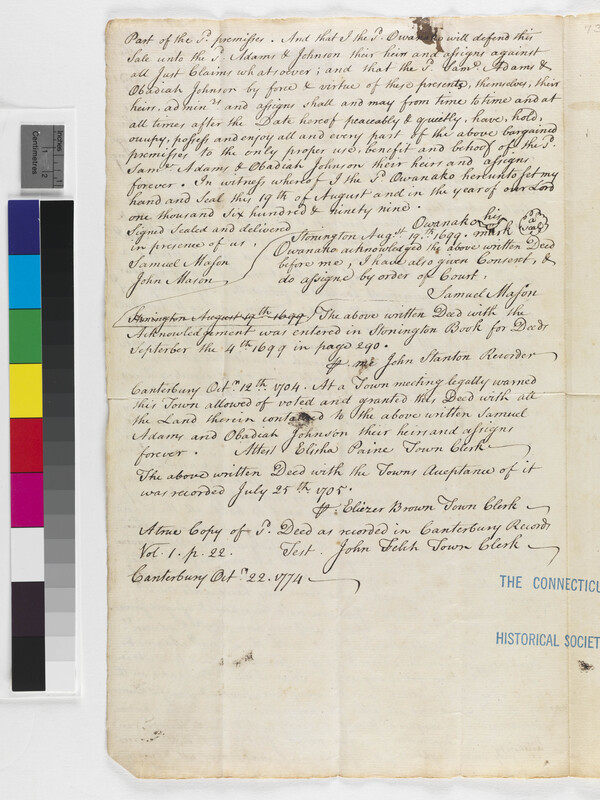 Part of the s.d premisses. And that I the s.d Owanako will defend this
Sale unto the s.d Adams & Johnson their heirs and assigns against
all Just Claims whatsoever; and that the s.d Sam.l Adams &
Obadiah Johnson by force & virtue of these presents, themselves, their
heirs, admin.rs and assigns shall and may from time to time and at
all times after the Date hereof peaceably & quietly, have, hold,
occupy, possess and enjoy all and every part of the above bargained
premisses to the only proper use, benefit and behoof of the s.d
Sam.l Adams & Obadiah Johnson their heirs and assigns
forever. In witness whereof I the s.d Owanako hereunto set my
hand and Seal this 19th of August and in the year of our Lord
one thousand Six hundred & ninety nine.
Signed Sealed and delivered
in presence of us.
Samuel Mason
John Mason
Owanako his mark
a seal
Stonington Aug.st 19.th 1699.
Owanako acknowledged the above written Deed
before me, I have also given Consent, &
do assigne by order of Court,
Samuel Mason
Stonington August 19th 1699 / The above written Deed with the
Acknowledgment was entered in Stonington Book for Deeds
September the 4th 1699 in page 290.
me John Stanton Recorder
Canterbury Oct.r 12th 1704. At a Town meeting legally warned
this Town allowed of voted and granted this Deed with all
the Land therein contained to the above written Samuel
Adams and Obadiah Johnson their heirs and assigns
forever. Attest Elisha Paine Town Clerk
The above written Deed with the Towns Acceptance of it
was recorded July 25th 1705.
Eliezer Brown Town Clerk
A true Copy of s.d Deed as recorded in Canterbury Records
Vol. 1. p. 22. Test. John Felch Town Clerk
Canterbury Oct.r 22. 1774
THE CONNECTICU
HISTORICAL SOCIET
Centimetres
Inches